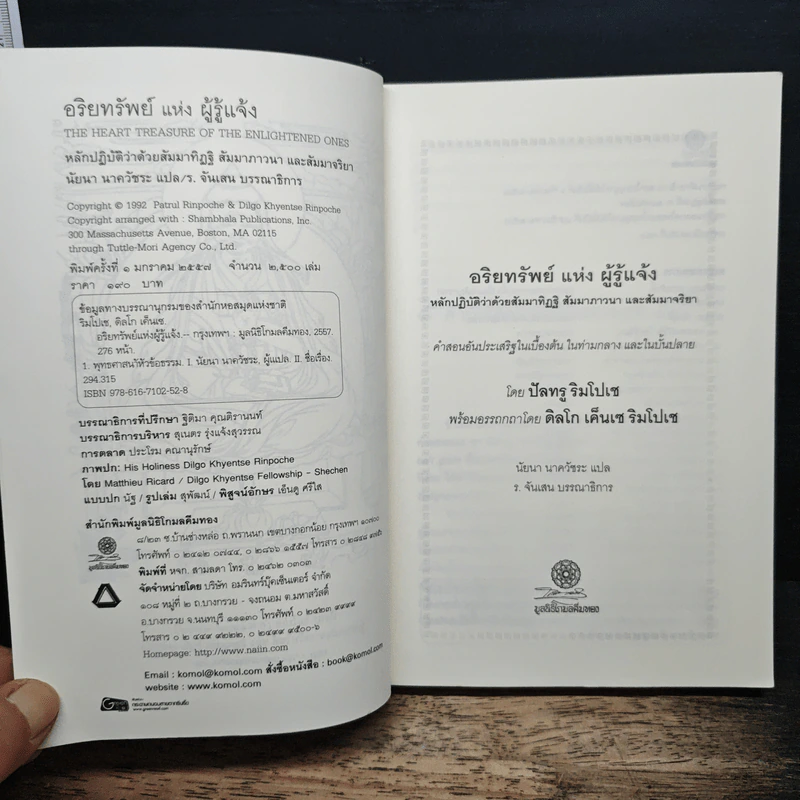 อริยทรัพย์ แห่ง ผู้รู้แจ้ง
THE HEART TREASURE OF THE ENLIGHTENED ONES
หลักปฏิบัติว่าด้วยสัมมาทิฏฐิ สัมมาภาวนา และสัมมาจริยา
นัยนา นาควัชระ แปล/ร. จันเสน บรรณาธิการ
Copyright © 1992 Patrul Rinpoche & Dilgo Khyentse Rinpoche
Copyright arranged with : Shambhala Publications, Inc.
300 Massachusetts Avenue, Boston, MA 02115
through Tuttle-Mori Agency Co., Ltd.
พิมพ์ครั้งที่ ๑ มกราคม ๒๕๕๗ จำนวน ๒,๕๐๐ เล่ม
ราคา ๑๙๐ บาท
ข้อมูลทางบรรณานุกรมของสำนักหอสมุดแห่งชาติ
ริมโปเซ, ดิลโก เค็นเซ.
อริยทรัพย์แห่งผู้รู้แจ้ง.-- กรุงเทพฯ : มูลนิธิโกมลคีมทอง, 2557.
276 หน้า.
1. พุทธศาสนาหัวข้อธรรม. I. นัยนา นาควัชระ, ผู้แปล. II. ชื่อเรื่อง.
294.315
ISBN 978-616-7102-52-8
บรรณาธิการที่ปรึกษา ฐิติมา คุณติรานนท์
บรรณาธิการบริหาร สุเนตร รุ่งแจ้งสุวรรณ
การตลาด ประโรม คณานุรักษ์
ภาพปก: His Holiness Dilgo Khyentse Rinpoche
โดย Matthieu Ricard / Dilgo Khyentse Fellowship - Shechen
แบบปก นัฐ / รูปเล่ม สุพัฒน์ / พิสูจน์อักษร เอ็นดู ศรีใส
สำนักพิมพ์มูลนิธิโกมลคีมทอง
๘/๒๓ ซ.บ้านช่างหล่อ ถ.พรานนก เขตบางกอกน้อย กรุงเทพฯ ๑๐๗๐๐
โทรศัพท์ ๐ ๒๔๑๒ ๐๗๔๔, ๐ ๒๘๖๖ ๑๕๕๗ โทรสาร ๐ ๒๘๔๘
มูลนิธิโกมลคีมทอง
พิมพ์ที่ หจก. สามลดา โทร. ๐ ๒๔๖๒ ๐๓๐๓
จัดจำหน่ายโดย บริษัท อมรินทร์บุ๊คเซ็นเตอร์ จำกัด
๑๐๘ หมู่ที่ ๒ ถ.บางกรวย - จงถนอม ต.มหาสวัสดิ์
อ.บางกรวย จ.นนทบุรี ๑๑๑๓๐ โทรศัพท์ ๐ ๒๔๒๓ ๙๙๙๙
โทรสาร ๐ ๒ ๔๔๙ ๙๒๒๒, ๐ ๒๔๙๙ ๙๕๐๐-๖
Homepage: http://www.naiin.com
Email : komol@komol.com สั่งซื้อหนังสือ : book@komol.com
website : www.komol.com
อริยทรัพย์ แห่ง ผู้รู้แจ้ง
หลักปฏิบัติว่าด้วยสัมมาทิฏฐิ สัมมาภาวนา และสัมมาจริยา
คำสอนอันประเสริฐในเบื้องต้น ในท่ามกลาง และในบั้นปลาย
โดย ปัลทรู ริมโปเช
พร้อมอรรถกถาโดย ดิลโก เค็นเซ ริมโปเช
นัยนา นาควัชระ แปล
ร. จันเสน บรรณาธิการ
มูลนิธิโกมลคีมทอง